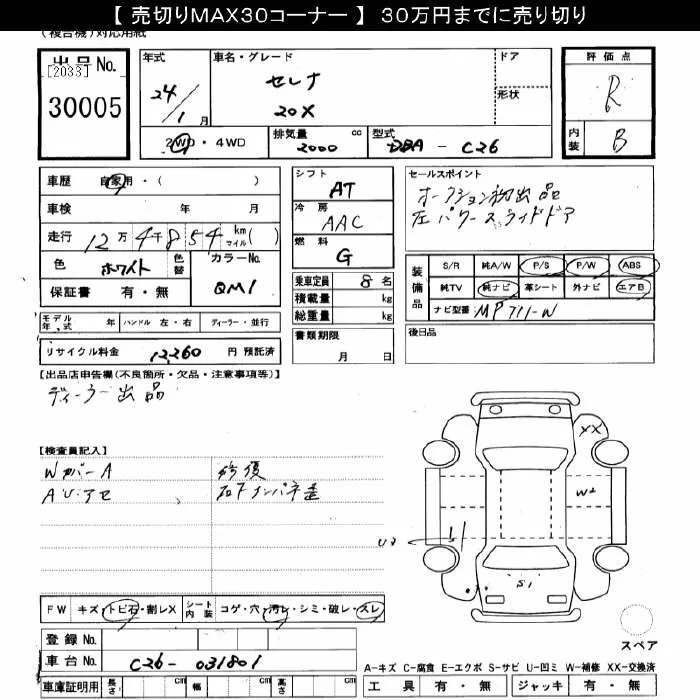 【 売切りMAX30コーナー 】 30万円までに売り切り
(複合機)対応用紙
出品No.
[2033]
30005
年式
24/1月
車名・グレード
セレナ
20X
ドア
形状
評価点
R
内装
B
2WD・4WD
排気量
2000 cc
型式
DBA - C26
車歴 自家用・( )
車検 年 月
走行 12万4千854 km マイル( )
色 ホワイト 色替 カラーNo. QM1
保証書 有・無
シフト
AT
冷房
AAC
燃料
G
乗車定員 8名
積載量 kg
総重量 kg
セールスポイント
オークション初出品
左パワースライドドア
装備品
S/R 純A/W P/S P/W ABS
純TV 純ナビ 革シート 外ナビ エアB
ナビ型番 MP711-W
モデル年式 年 ハンドル 左・右 ディーラー・並行
リサイクル料金 12,260 円 預託済
書類期限
月 日
後日品
【出品店申告欄(不良箇所・欠品・注意事項等)】
ディーラー出品
【検査員記入】
WカバーA 修復
XX
W2
U2
S1
FW キズ・トビ石・割レX シート内装 コゲ・穴・汚レ・シミ・破レ・スレ
スペア
登録No.
車台No. C26-031801
車庫証明用 長さ cm 幅 cm 高さ cm
A-キズ C-腐食 E-エクボ S-サビ U-凹ミ W-補修 XX-交換済
工具 有・無 ジャッキ 有・無